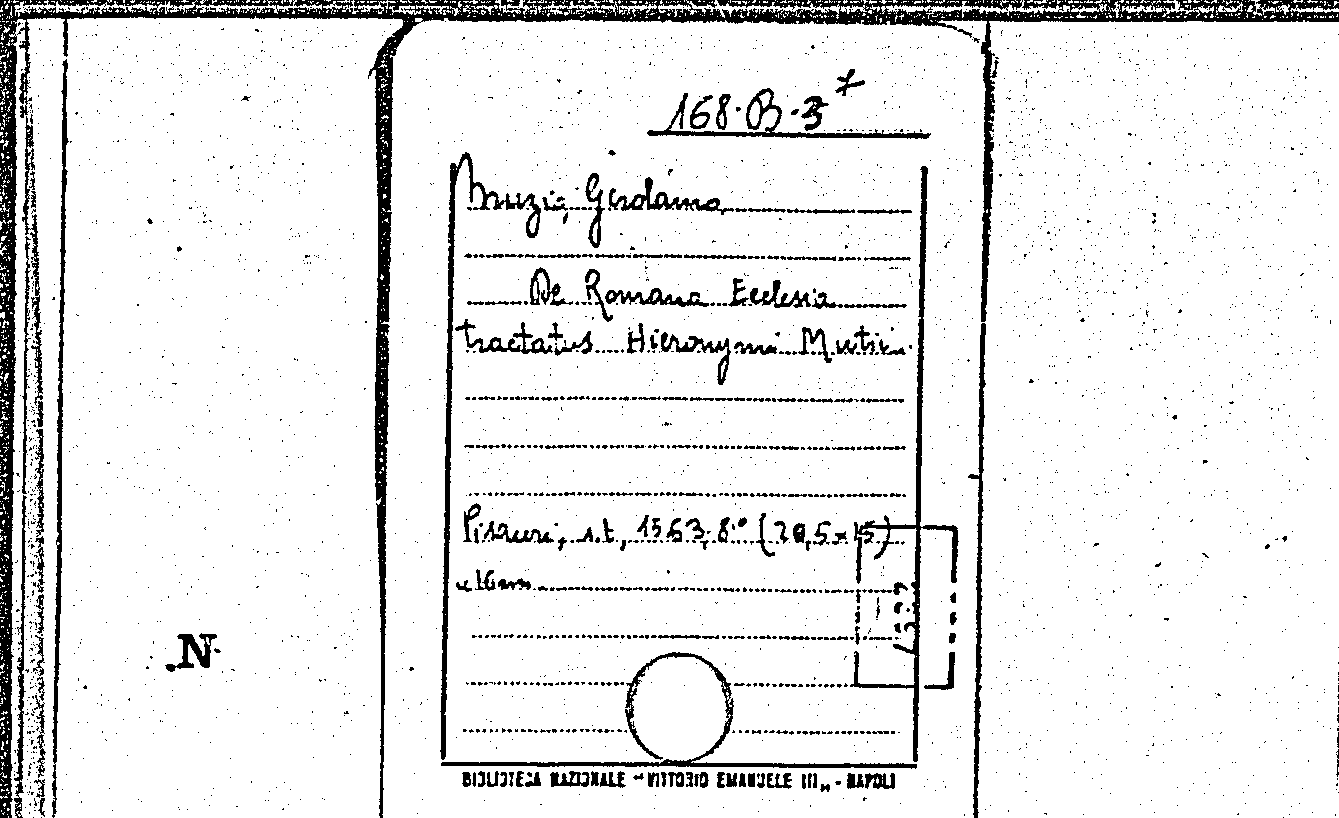 168.B.3⁷
Muzio, Gerolamo
De Romana Ecclesia
tractatus Hieronymi Mutii.
Pisauri, s.t, 1563, 8.° (20,5×15)
N
BIBLIOTECA NAZIONALE "VITTORIO EMANUELE III„ - NAPOLI